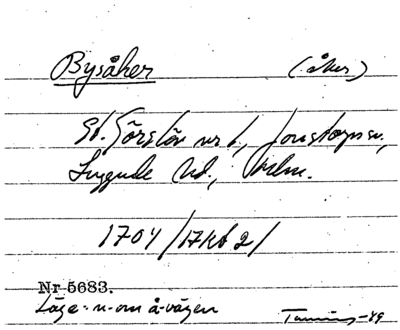 Bysåker (åker)
St. Görslöv nr 6, Jonstorps sn,
Luggude hd., Mlm.
1704 /17Kb 2/
Nr 5683.
Läge: n-om å-vägen
-89